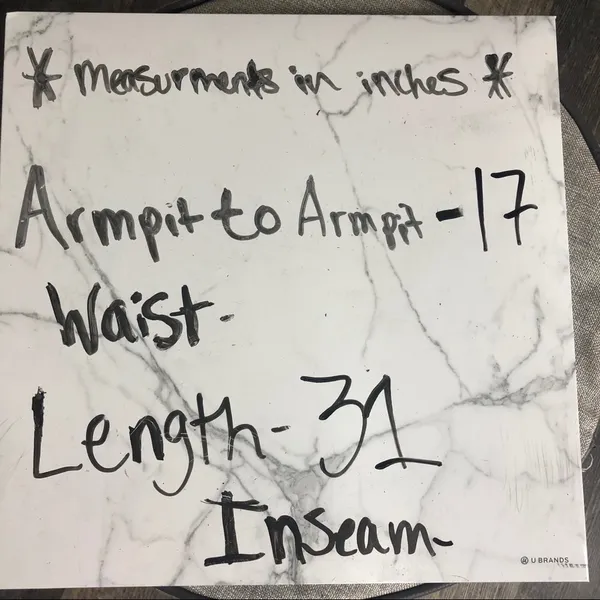 * measurments in inches *
Armpit to Armpit - 17
Waist -
Length - 31
Inseam -
U BRANDS